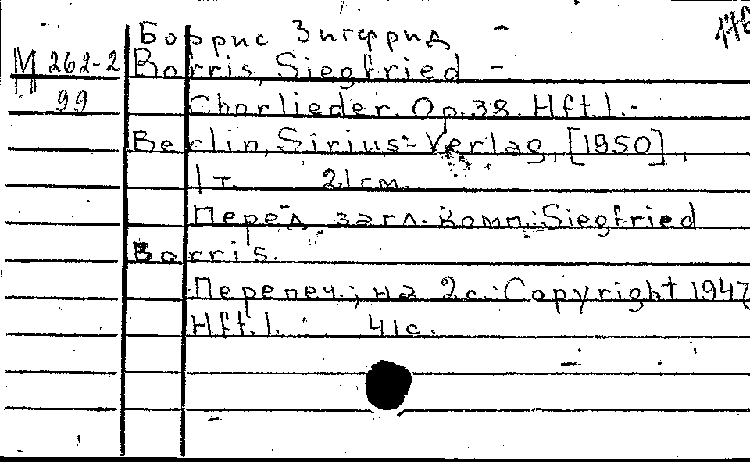 176
Боррис Зигфрид –
М 262-2 Borris, Siegfried –
99 Chorlieder. Op. 38. Hft.1.-
Berlin, Sirius-Verlag, [1950],
1 т. 21 см.
Перед загл. комп.: Siegfried
Borris.
Перепеч.; на 2 с.: Copyright 1947
Hft.1. 41 с.